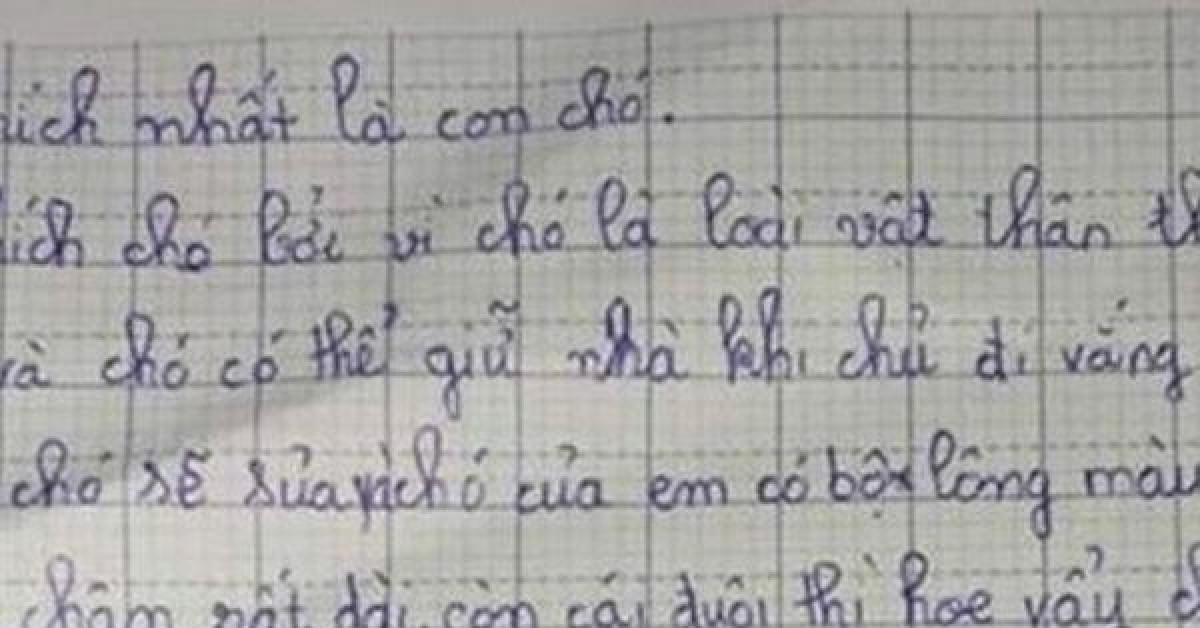 nhất là con chó.
chó bởi vì chó là loài vật thân
chó có thể giữ nhà khi chủ đi vắng
chó sẽ sủa chó của em có bộ lông màu
chân rất dài còn cái đuôi thì hoe vẩy